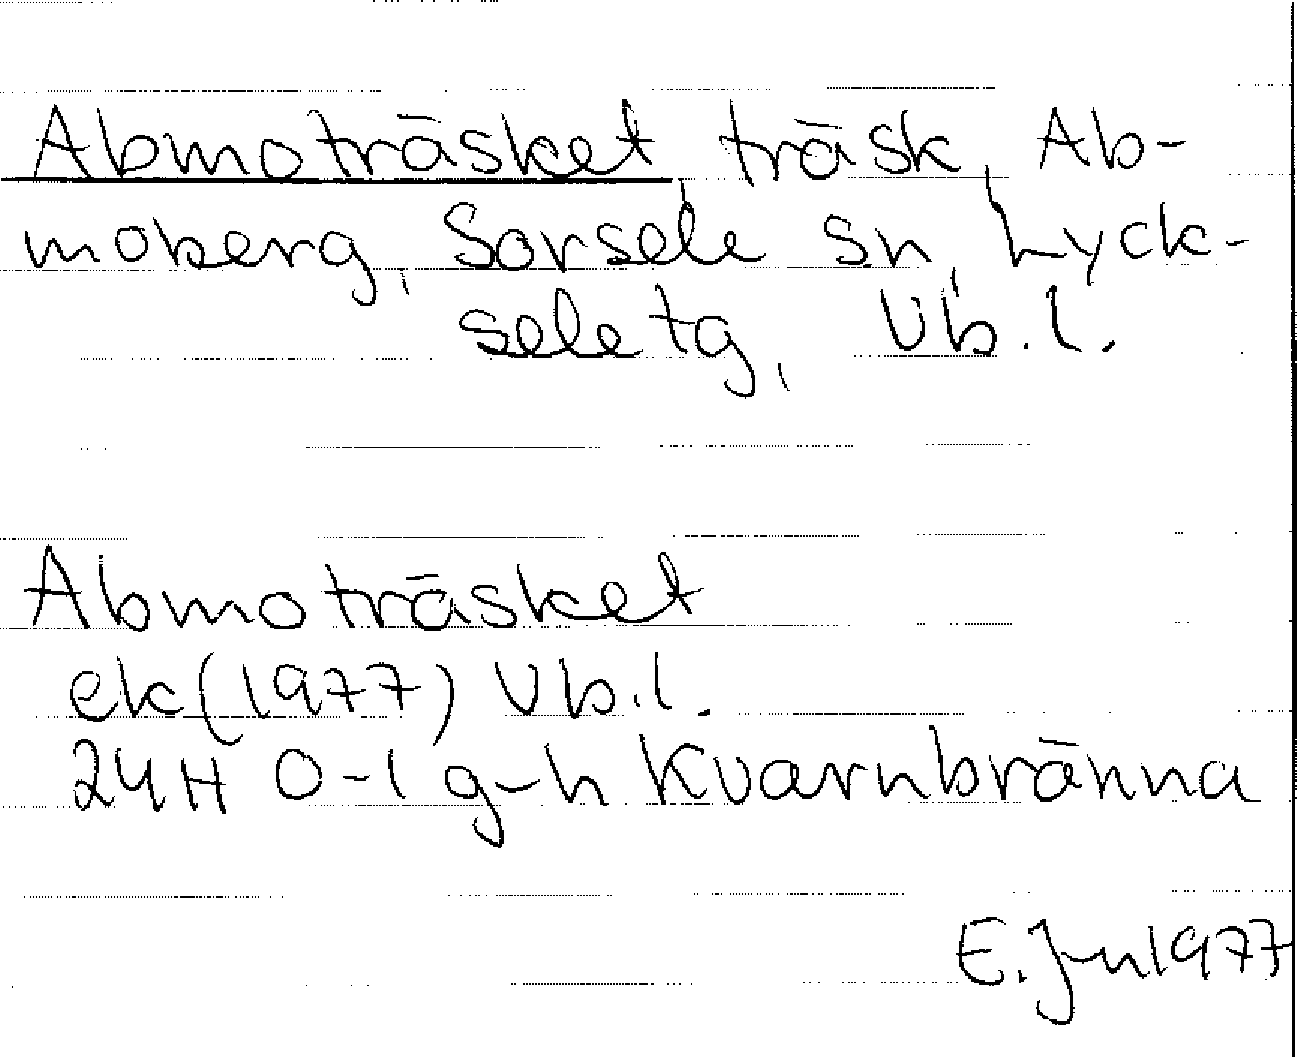 Abmoträsket träsk, Ab-
moberg, Sorsele sn, Lyck-
sele tg, Vb.l.
Abmoträsket
ek (1977) Vb.l.
24H 0-1 g-h Kvarnbränna
E. Jn 1977